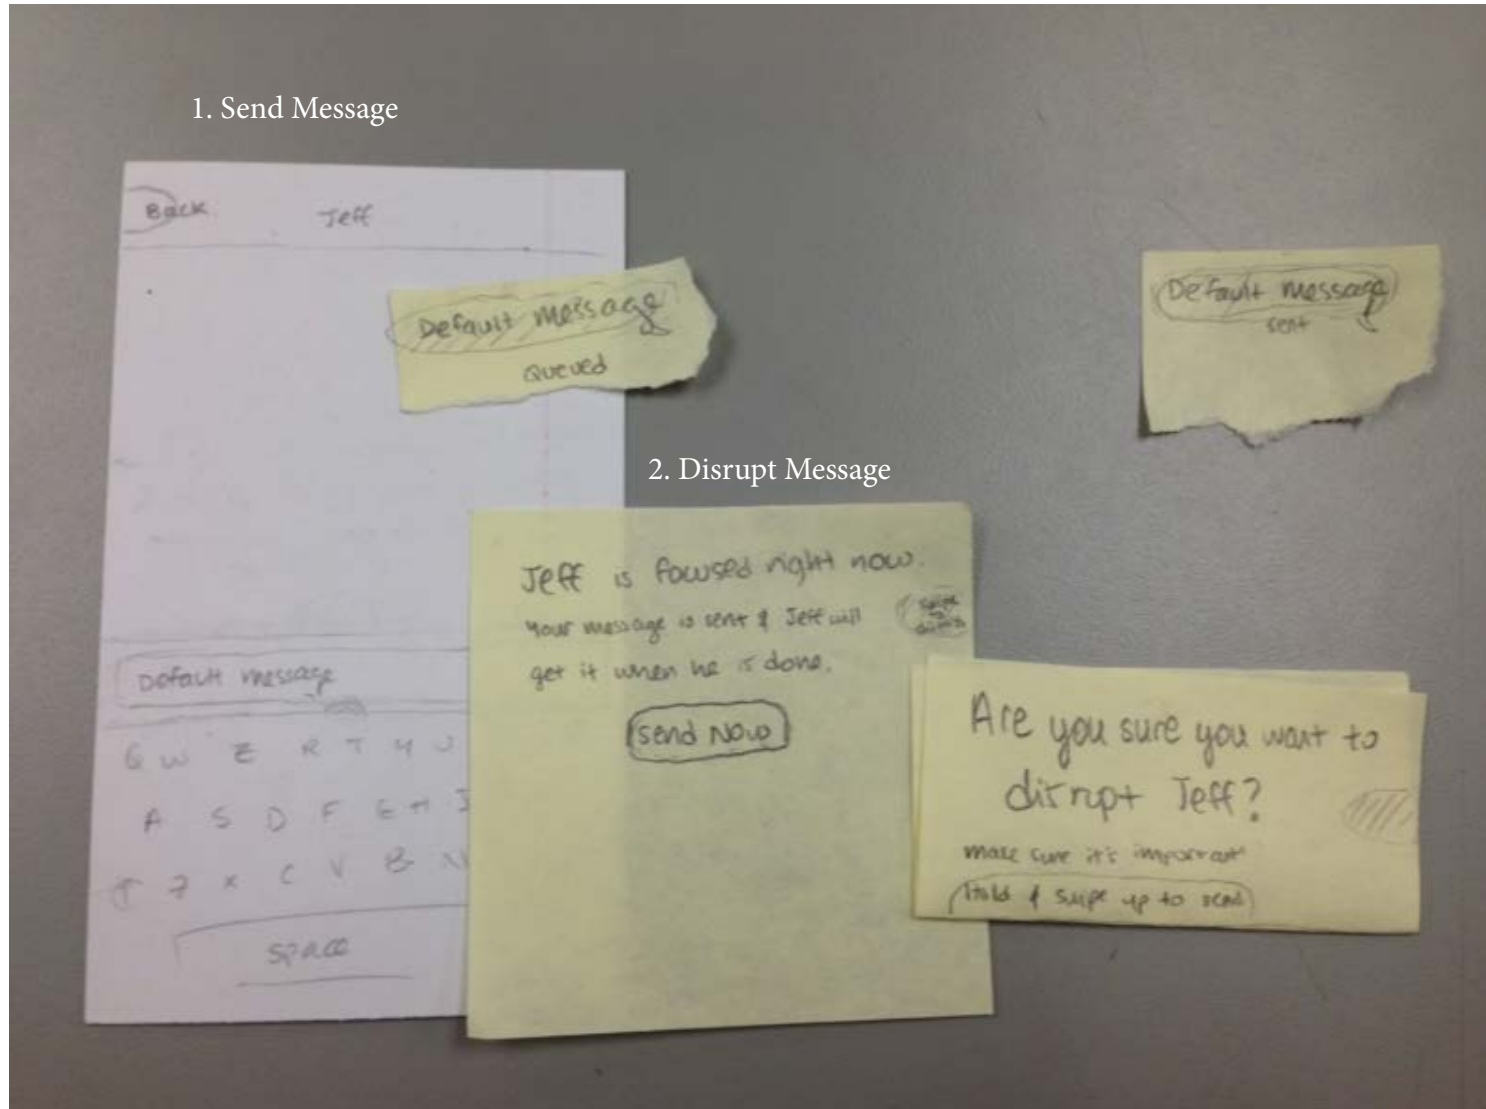 1. Send Message
Back
Jeff
Default message
Queued
Default message
sent
2. Disrupt Message
Jeff is focused right now.
Your message is sent & Jeff will
get it when he is done.
swipe
to
dismiss
Send Now
Default message
Q W E R T Y U
A S D F G H J
Z X C V B N
space
Are you sure you want to
disrupt Jeff?
make sure it's important
Hold & swipe up to send